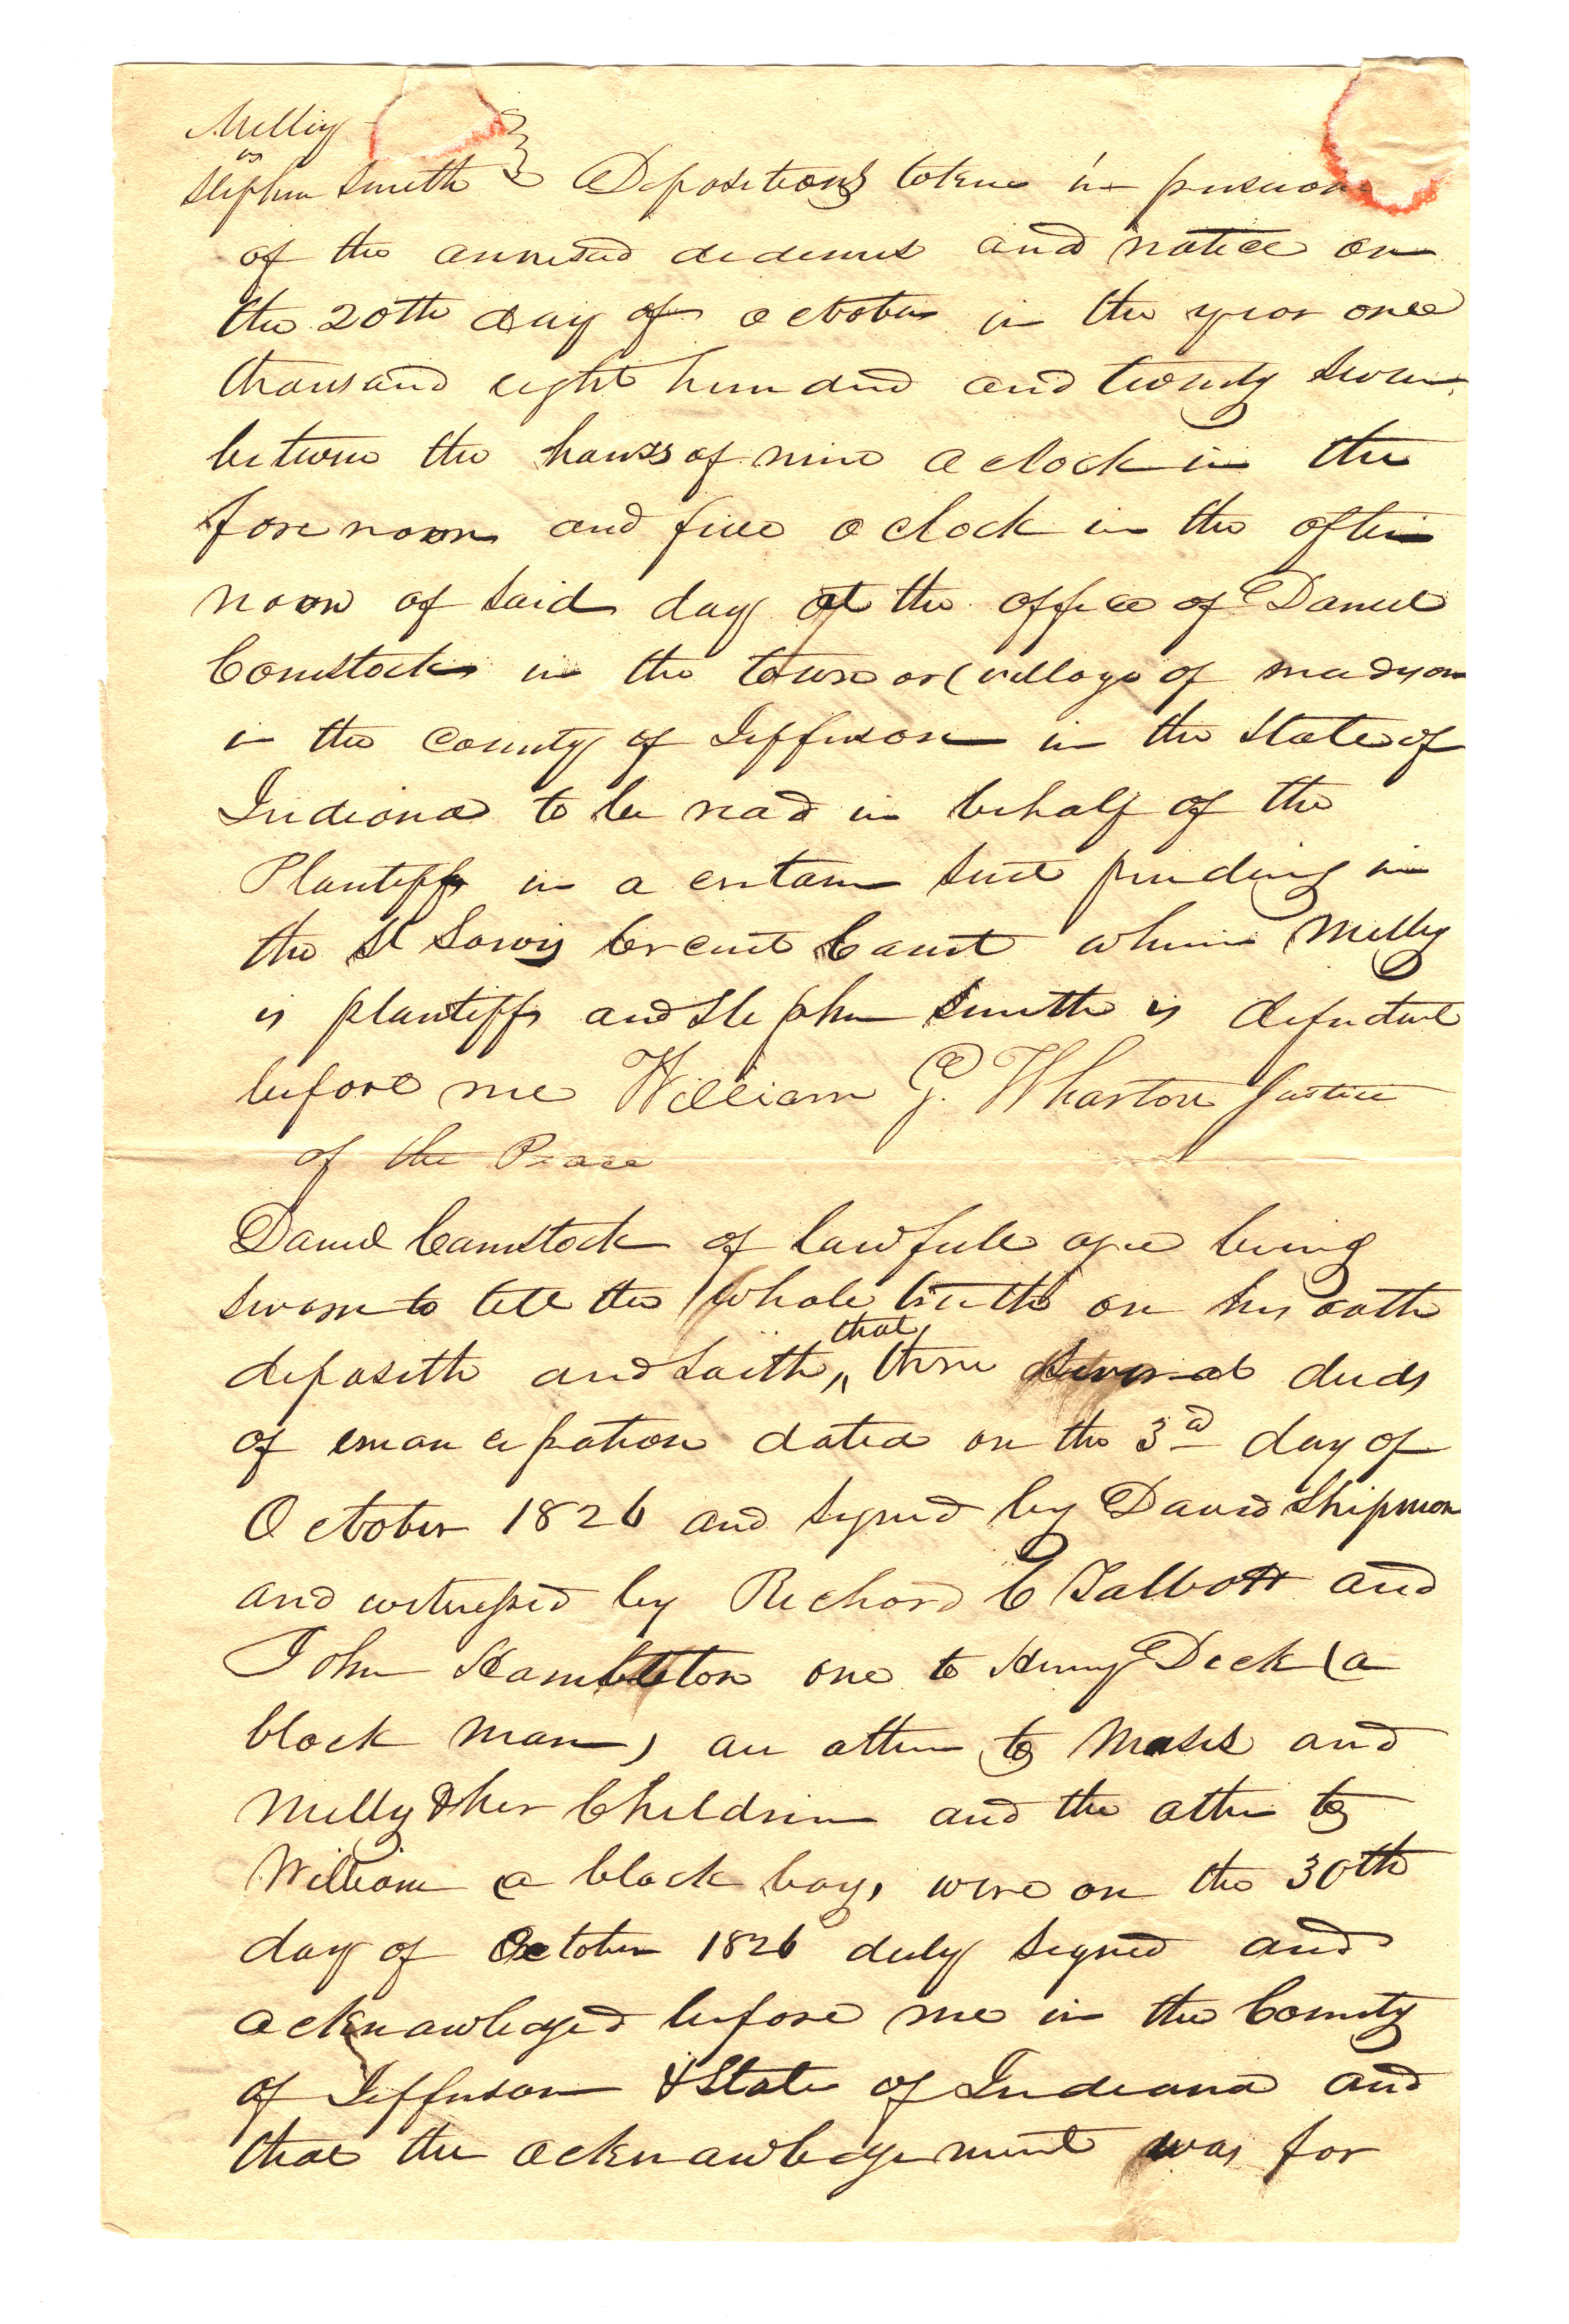 Milly
vs
Stephen Smith } Depositions taken in pursuance
of the annexed dedimus and notice on
the 20th day of october in the year one
thousand eight hundred and twenty seven
between the hours of nine o clock in the
fore noon and five o clock in the after
noon of said day at the office of Daniel
Comstock in the town or (village of madison
in the county of Jefferson in the State of
Indiana to be read in behalf of the
Plantiff in a certain suit pending in
the St Louis Circuit Court wherein Milly
is plantiff and Stephen Smith is defendant
before me William G. Wharton Justice
of the Peace
Daniel Comstock of lawfull age being
sworn to tell the whole truth on his oath
deposeth and saith, that three several deeds
of emancipation dated on the 3d day of
October 1826 and signed by David Shipman
and witnessed by Richard C Talbott and
John Hambleton one to Henry Dick (a
black man) an other to Moses and
Milly & her Children and the other to
William a black boy, were on the 30th
day of October 1826 duly signed and
acknowledged before me in the County
of Jefferson & State of Indiana and
that the acknowledgement was for